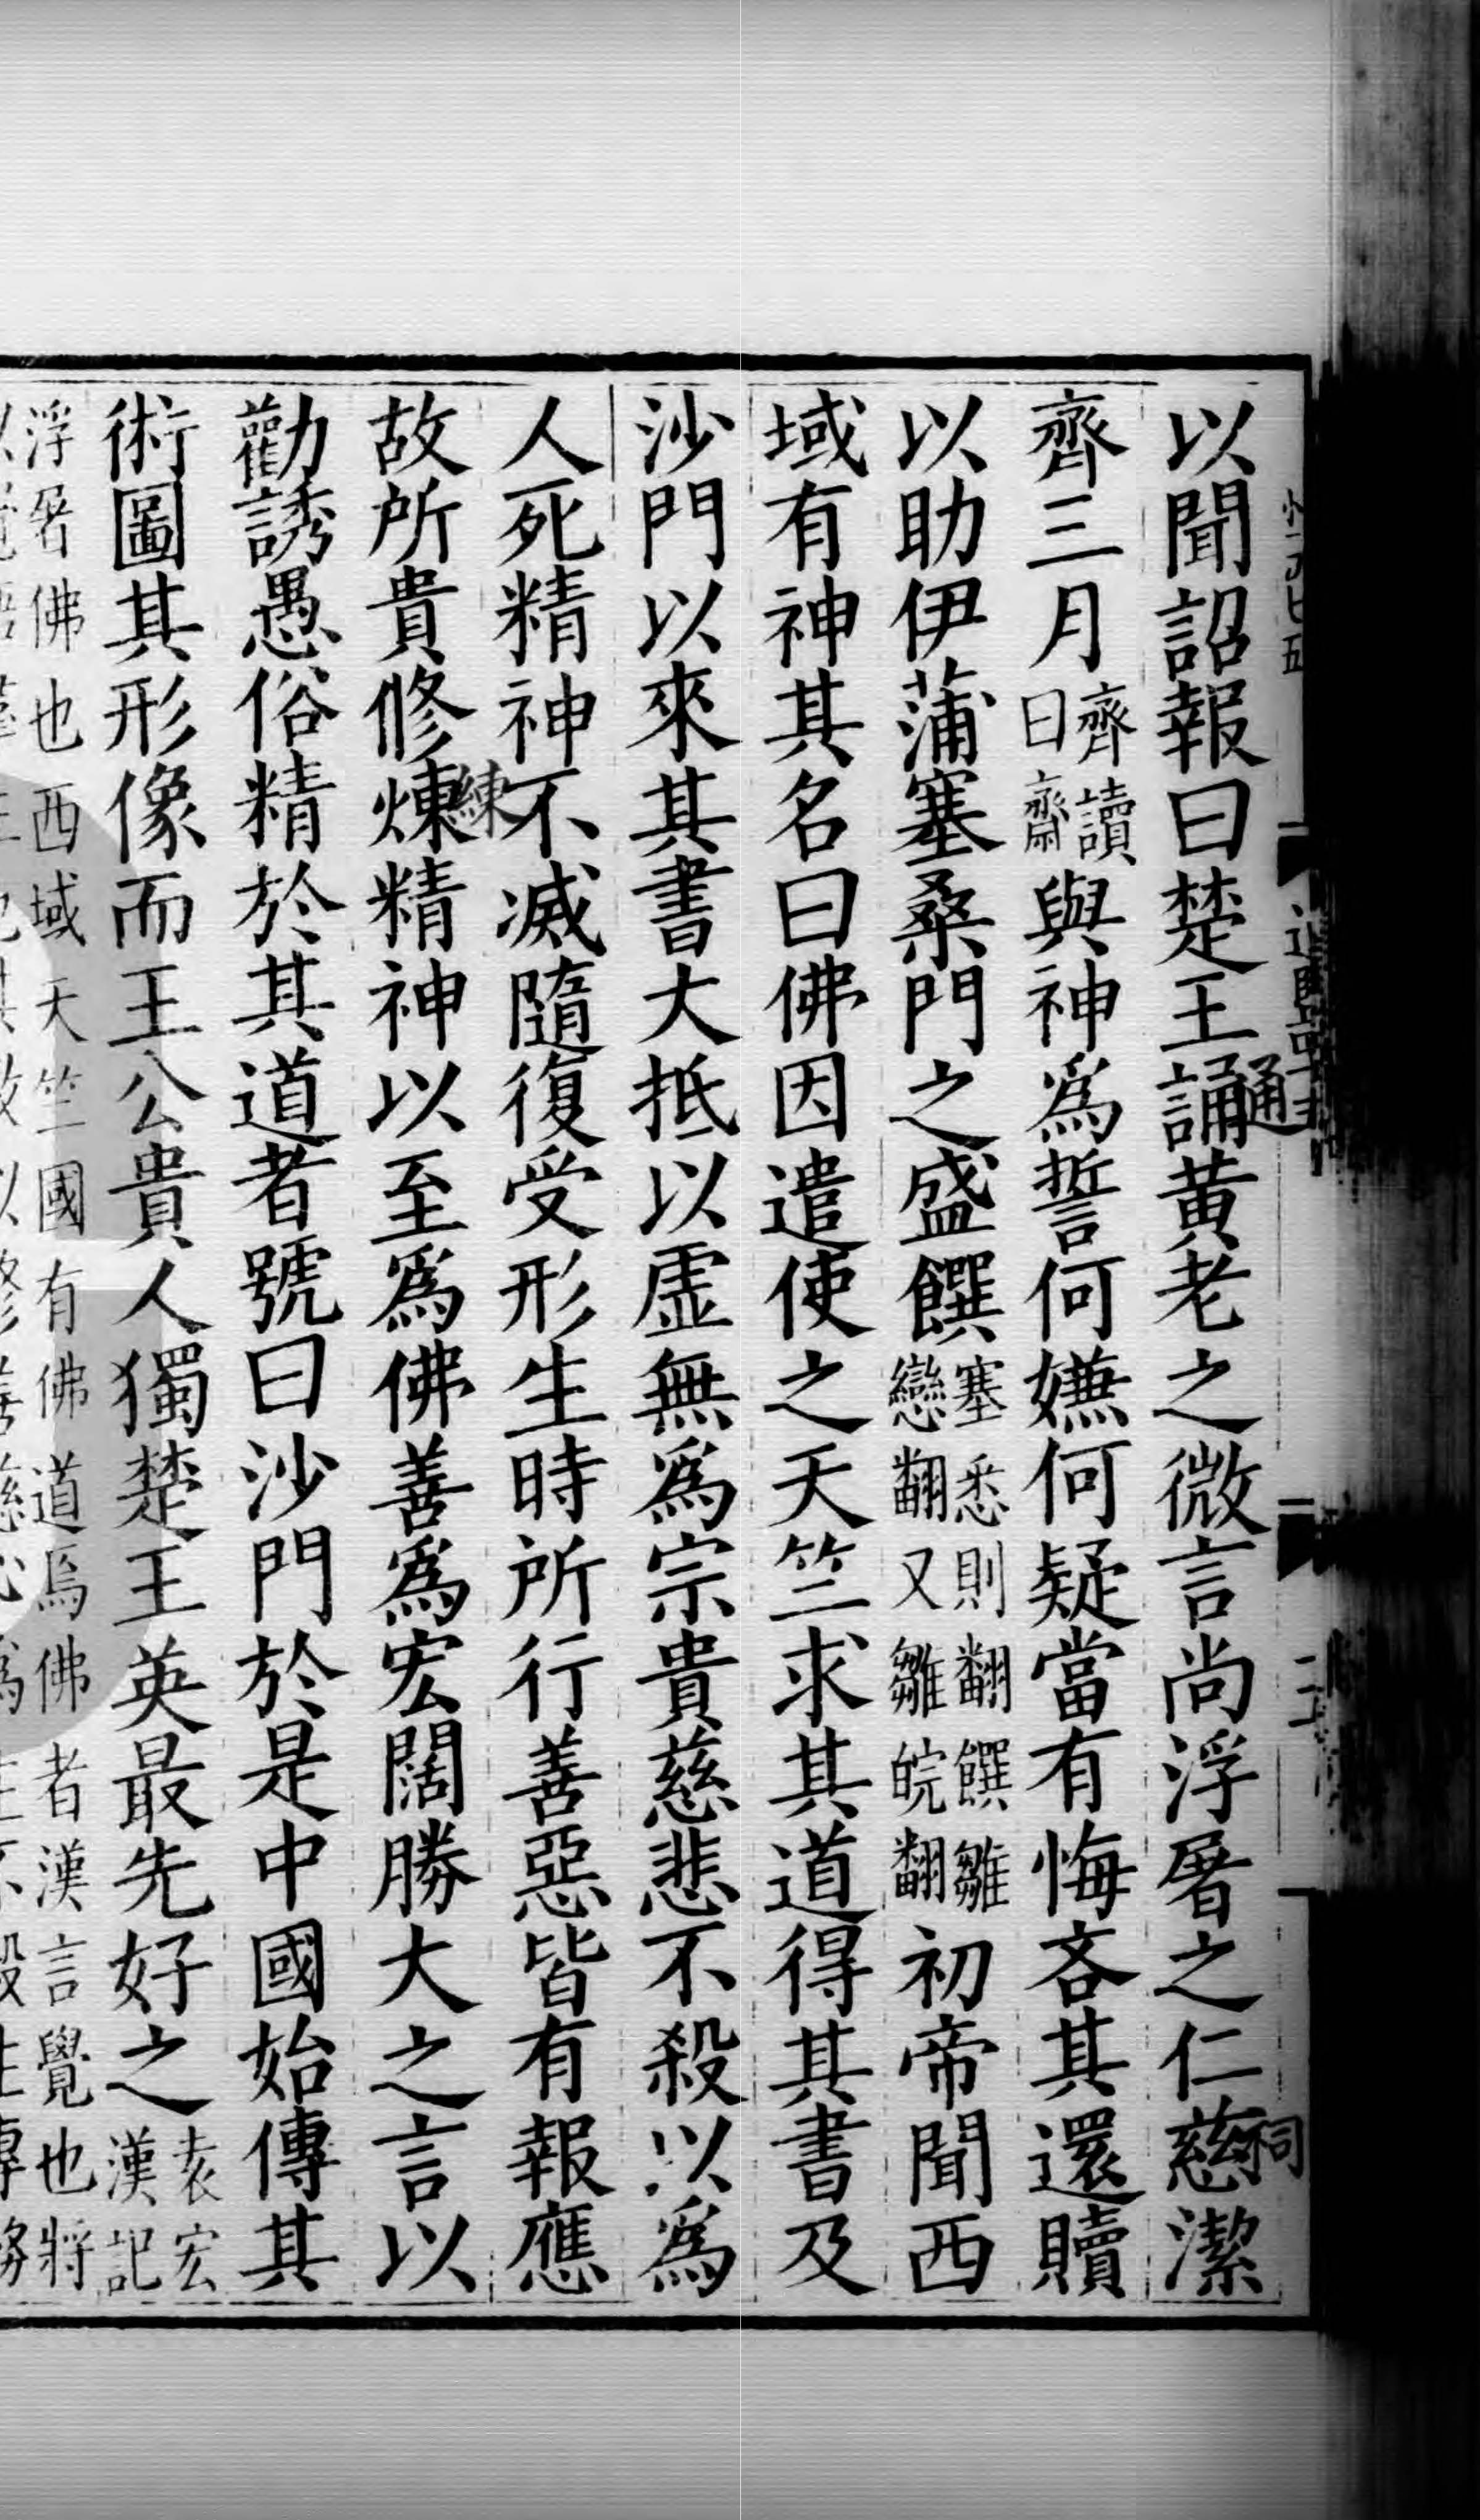 以聞詔報曰楚王誦黃老之微言尚浮屠之仁慈潔
通
祠
齊三月齊讀曰齋與神爲誓何嫌何疑當有悔吝其還贖
以助伊蒲塞桑門之盛饌塞悉則翻饌雛戀翻又雛皖翻初帝聞西
域有神其名曰佛因遣使之天竺求其道得其書及
沙門以來其書大抵以虛無爲宗貴慈悲不殺以爲
人死精神不滅隨復受形生時所行善惡皆有報應
故所貴修煉精神以至爲佛善爲宏闊勝大之言以
練
勸誘愚俗精於其道者號曰沙門於是中國始傳其
術圖其形像而王公貴人獨楚王英最先好之袁宏漢記
浮屠佛也西域天竺國有佛道焉佛者漢言覺也將